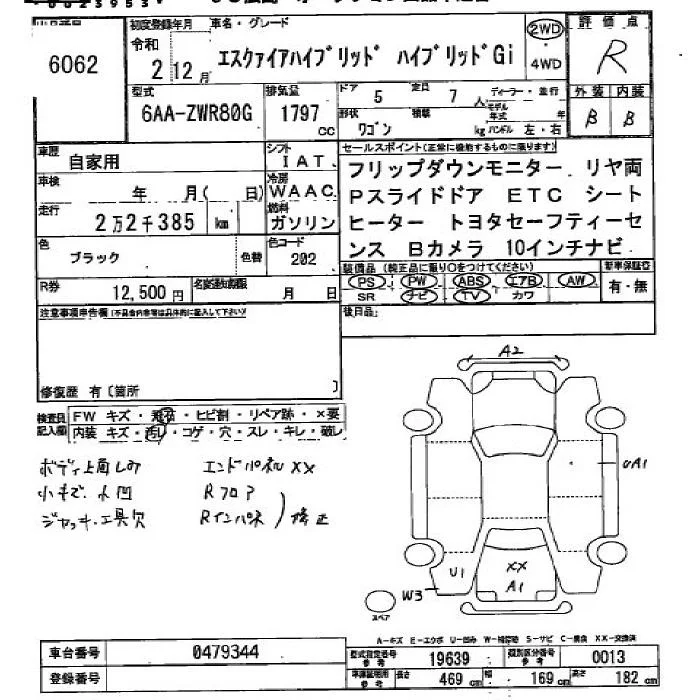 6062
初度登録年月
令和
2 12月
車名・グレード
エスクァイアハイブリッド ハイブリッドGi
2WD
4WD
評価点
R
外装 内装
B B
型式
6AA-ZWR80G
排気量
1797
cc
ドア 5
定員 7人
ディーラー・並行
モデル年式 年
形状 ワゴン
積載 kg
ハンドル 左・右
車歴
自家用
シフト
IAT
セールスポイント(正常に機能するものに限ります)
フリップダウンモニター リヤ両
Pスライドドア ETC シート
ヒーター トヨタセーフティーセ
ンス Bカメラ 10インチナビ
車検
年 月( 日)
冷房
WAAC
走行
2万2千385 km
燃料
ガソリン
色
ブラック
色替
色コード
202
装備品(純正品に限り○をつけてください)
PS PW ABS エアB AW
SR ナビ TV カワ
新車保証書
有・無
R券
12,500円
名変期限
月 日
後日品
注意事項申告欄(不具合内容等は具体的に記入して下さい)
修復歴 有〔箇所 〕
検査員記入欄
FW キズ・飛石・ヒビ割・リペア跡・×要
内装 キズ・汚レ・コゲ・穴・スレ・キレ・破レ
ボディ上廻しみ エンドパネルXX
小キズ、小凹 Rフロア
ジャッキ・工具欠 Rインパネ 修正
A2
UA1
U1
XX
A1
W3
スペア
A-キズ E-エクボ U-凹み W-補修跡 S-サビ C-腐食 XX-交換済
車台番号
0479344
登録番号
型式指定番号
参考
19639
類別区分番号
参考
0013
車庫証明用
参考
長さ 469 cm
幅 169 cm
高さ 182 cm